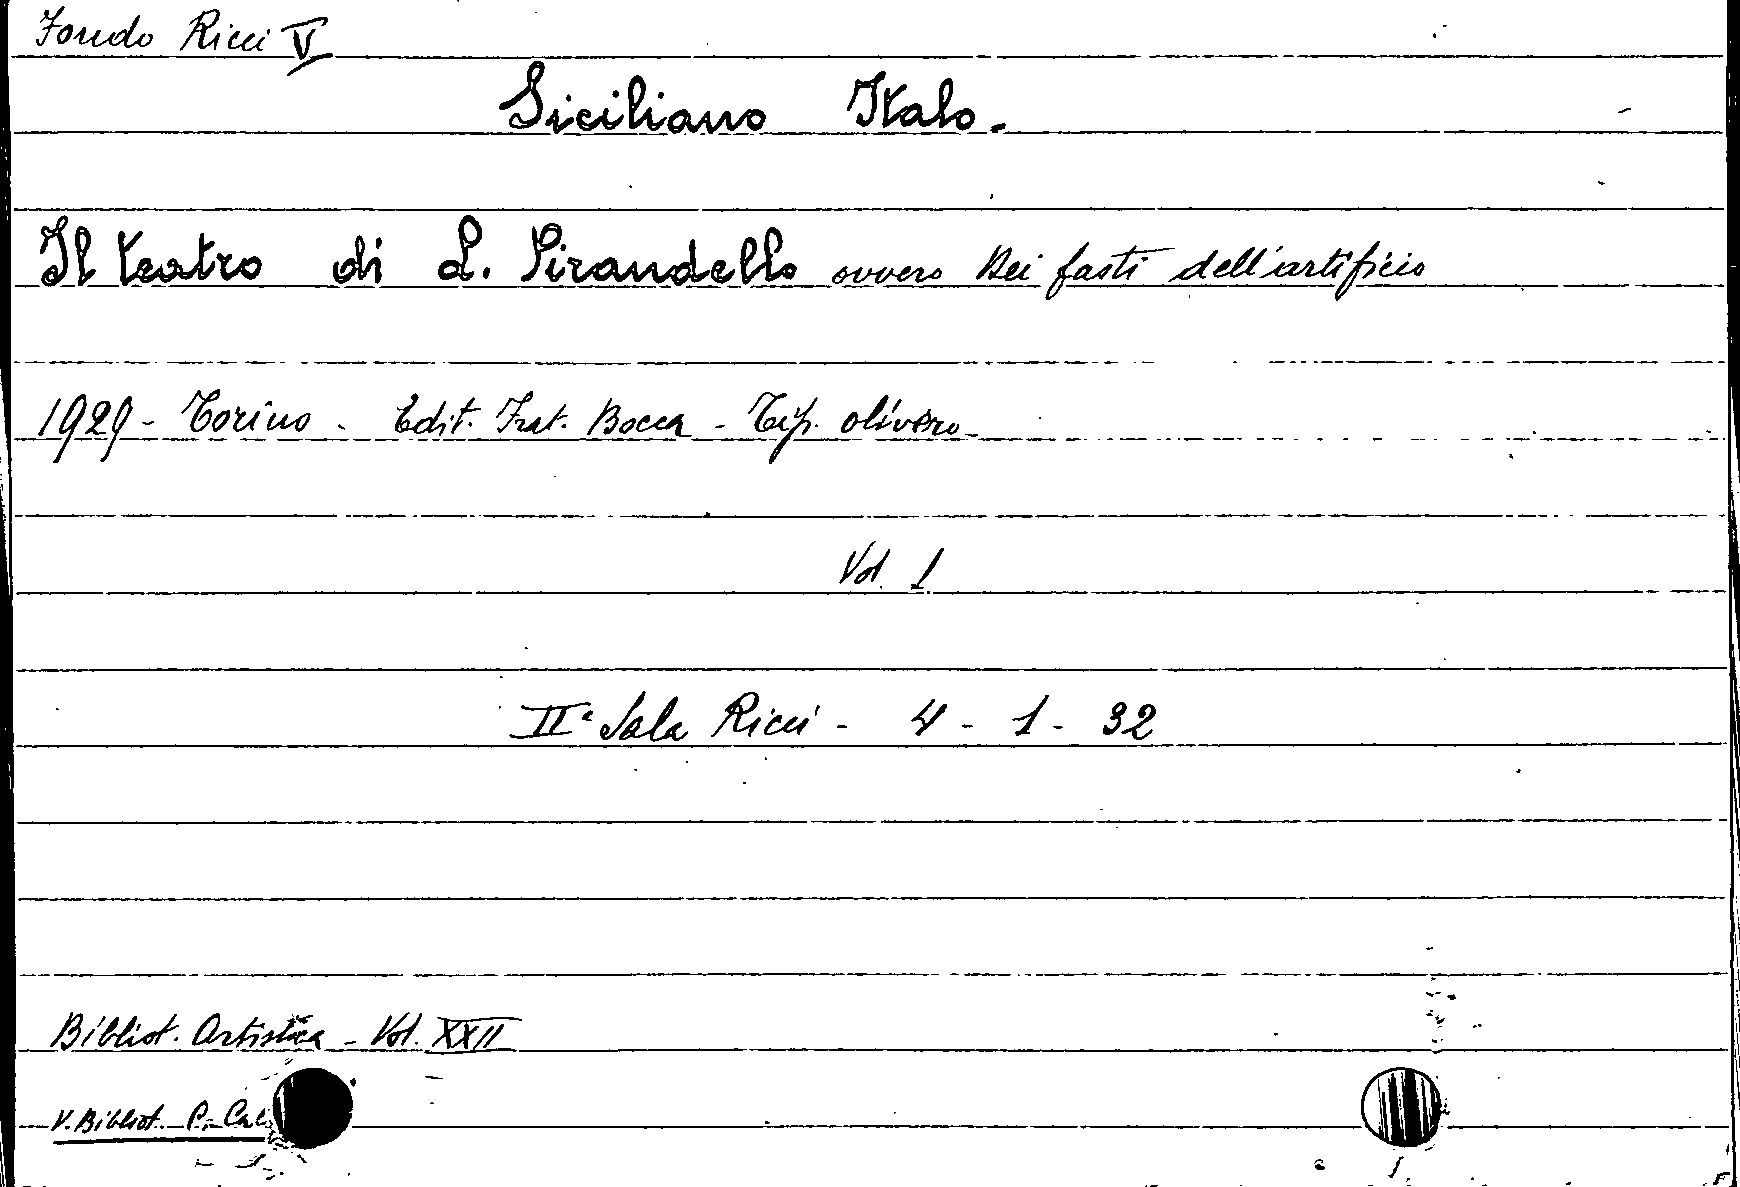 Fondo Ricci V
Siciliano Italo.
Il teatro di L. Pirandello ovvero Dei fasti dell'artificio
1929 - Torino - Edit. Frat. Bocca - Tip. Olivero
Vol. 1
IIa Sala Ricci - 4 - 1 - 32
Bibliot. Artistica - Vol. XXII
V. Bibliot. P. Cal